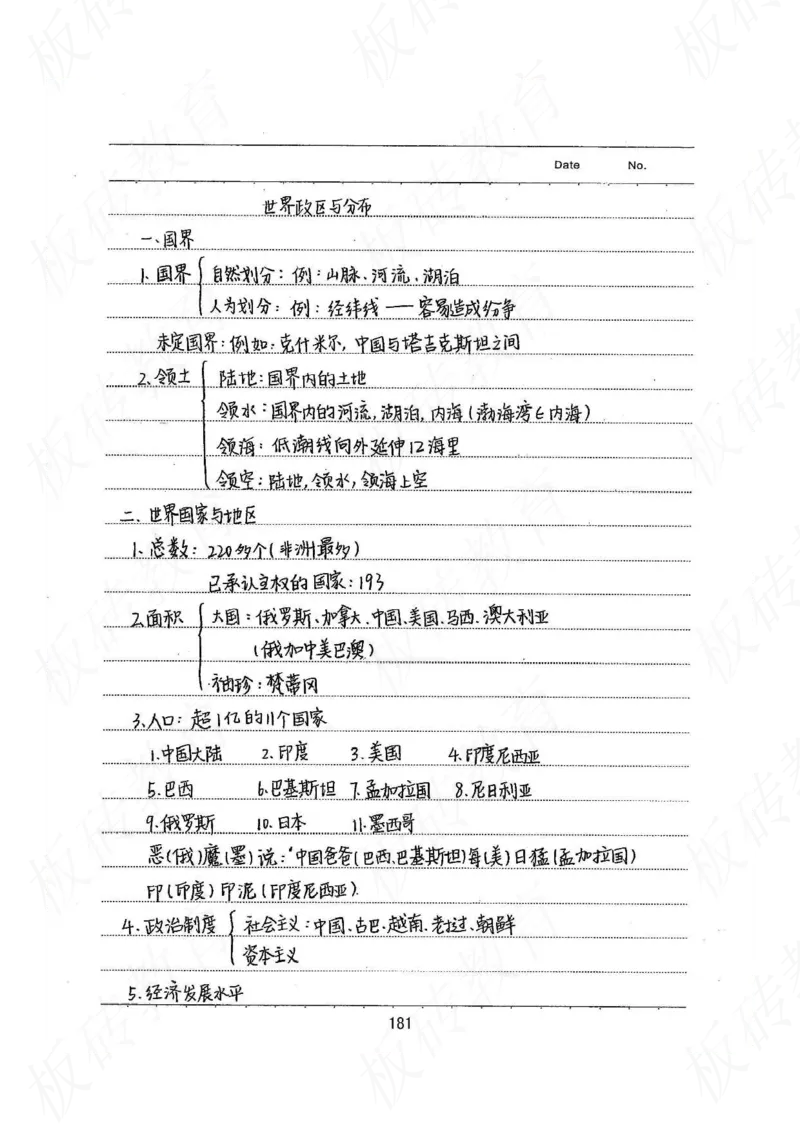 Date No.
世界政区与分布
一、国界
1. 国界 { 自然划分：例：山脉、河流、湖泊
人为划分：例：经纬线——容易造成纷争
未定国界：例如：克什米尔，中国与塔吉克斯坦之间
2. 领土 { 陆地：国界内的土地
领水：国界内的河流，湖泊，内海（渤海湾∈内海）
领海：低潮线向外延伸12海里
领空：陆地，领水，领海上空
二、世界国家与地区
1. 总数：220多个（非洲最多）
已承认主权的国家：193
2. 面积 { 大国：俄罗斯、加拿大、中国、美国、马西、澳大利亚
（俄加中美巴澳）
袖珍：梵蒂冈
3. 人口：超1亿的11个国家
1. 中国大陆 2. 印度 3. 美国 4. 印度尼西亚
5. 巴西 6. 巴基斯坦 7. 孟加拉国 8. 尼日利亚
9. 俄罗斯 10. 日本 11. 墨西哥
恶（俄）魔（墨）说：“中国爸爸（巴西、巴基斯坦）每（美）日猛（孟加拉国）
印（印度）印泥（印度尼西亚）.
4. 政治制度 { 社会主义：中国、古巴、越南、老挝、朝鲜
资本主义
5. 经济发展水平
181
板砖教育